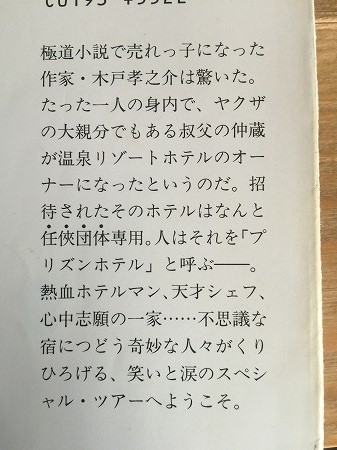 極道小説で売れっ子になった
作家・木戸孝之介は驚いた。
たった一人の身内で、ヤクザ
の大親分でもある叔父の仲蔵
が温泉リゾートホテルのオー
ナーになったというのだ。招
待されたそのホテルはなんと
任俠団体専用。人はそれを「プ
リズンホテル」と呼ぶ――。
熱血ホテルマン、天才シェフ、
心中志願の一家……不思議な
宿につどう奇妙な人々がくり
ひろげる、笑いと涙のスペシ
ャル・ツアーへようこそ。